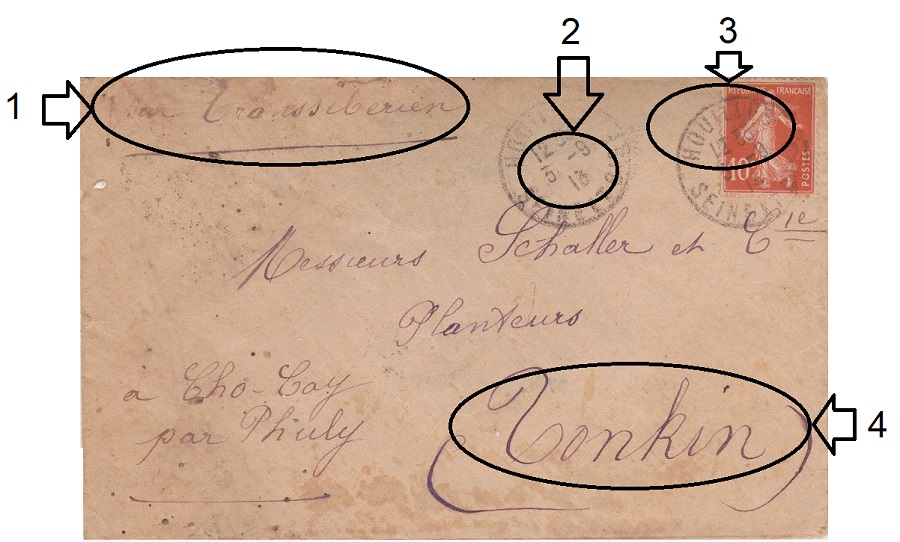 1
2
3
4
par Transsibérien
12
5 13
HOU
SEINE
REPUBLIQUE FRANCAISE
10
POSTES
Messieurs Schaller et Cie
Planteurs
a Cho-Gay
par Phuly
Tonkin